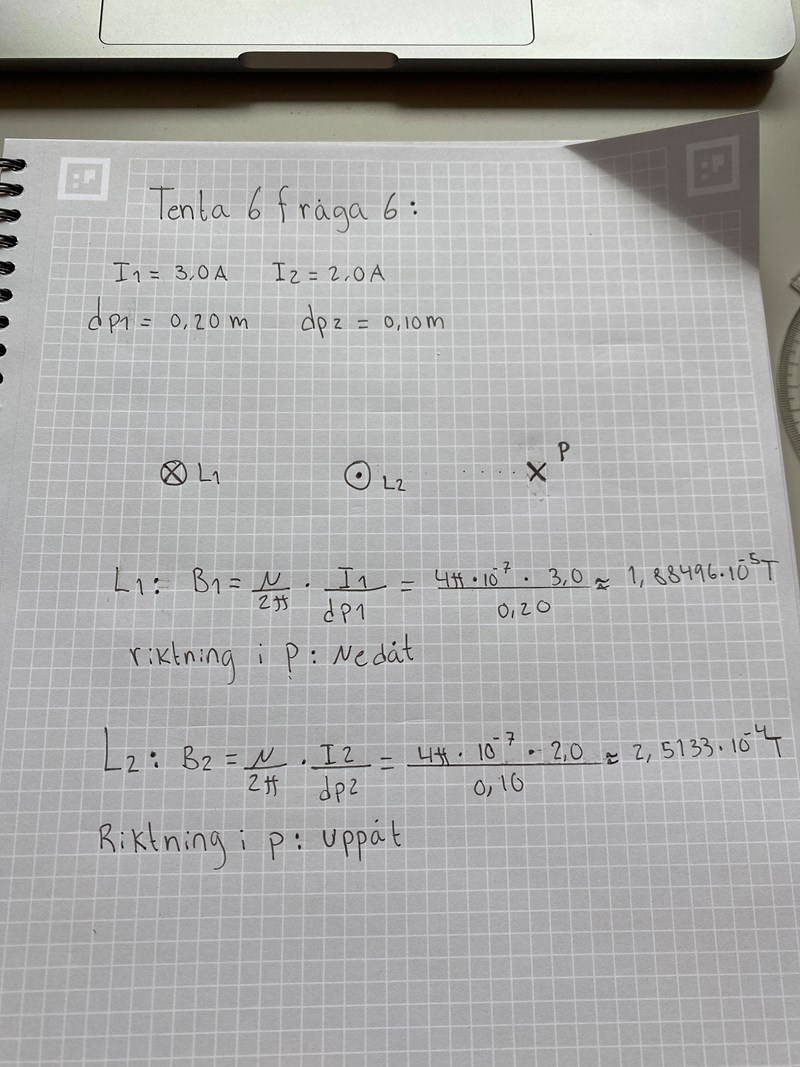 Tenta 6 fråga 6:
I1 = 3,0A I2 = 2,0A
dp1 = 0,20 m dp2 = 0,10m
⊗ L1 ⊙ L2 ..... × P
L1: B1 = μ/2π · I1/dp1 = 4π·10^-7 · 3,0/0,20 ≈ 1,88496·10^-5 T
riktning i p: Nedåt
L2: B2 = μ/2π · I2/dp2 = 4π·10^-7 · 2,0/0,10 ≈ 2,5133·10^-4 T
Riktning i p: uppåt